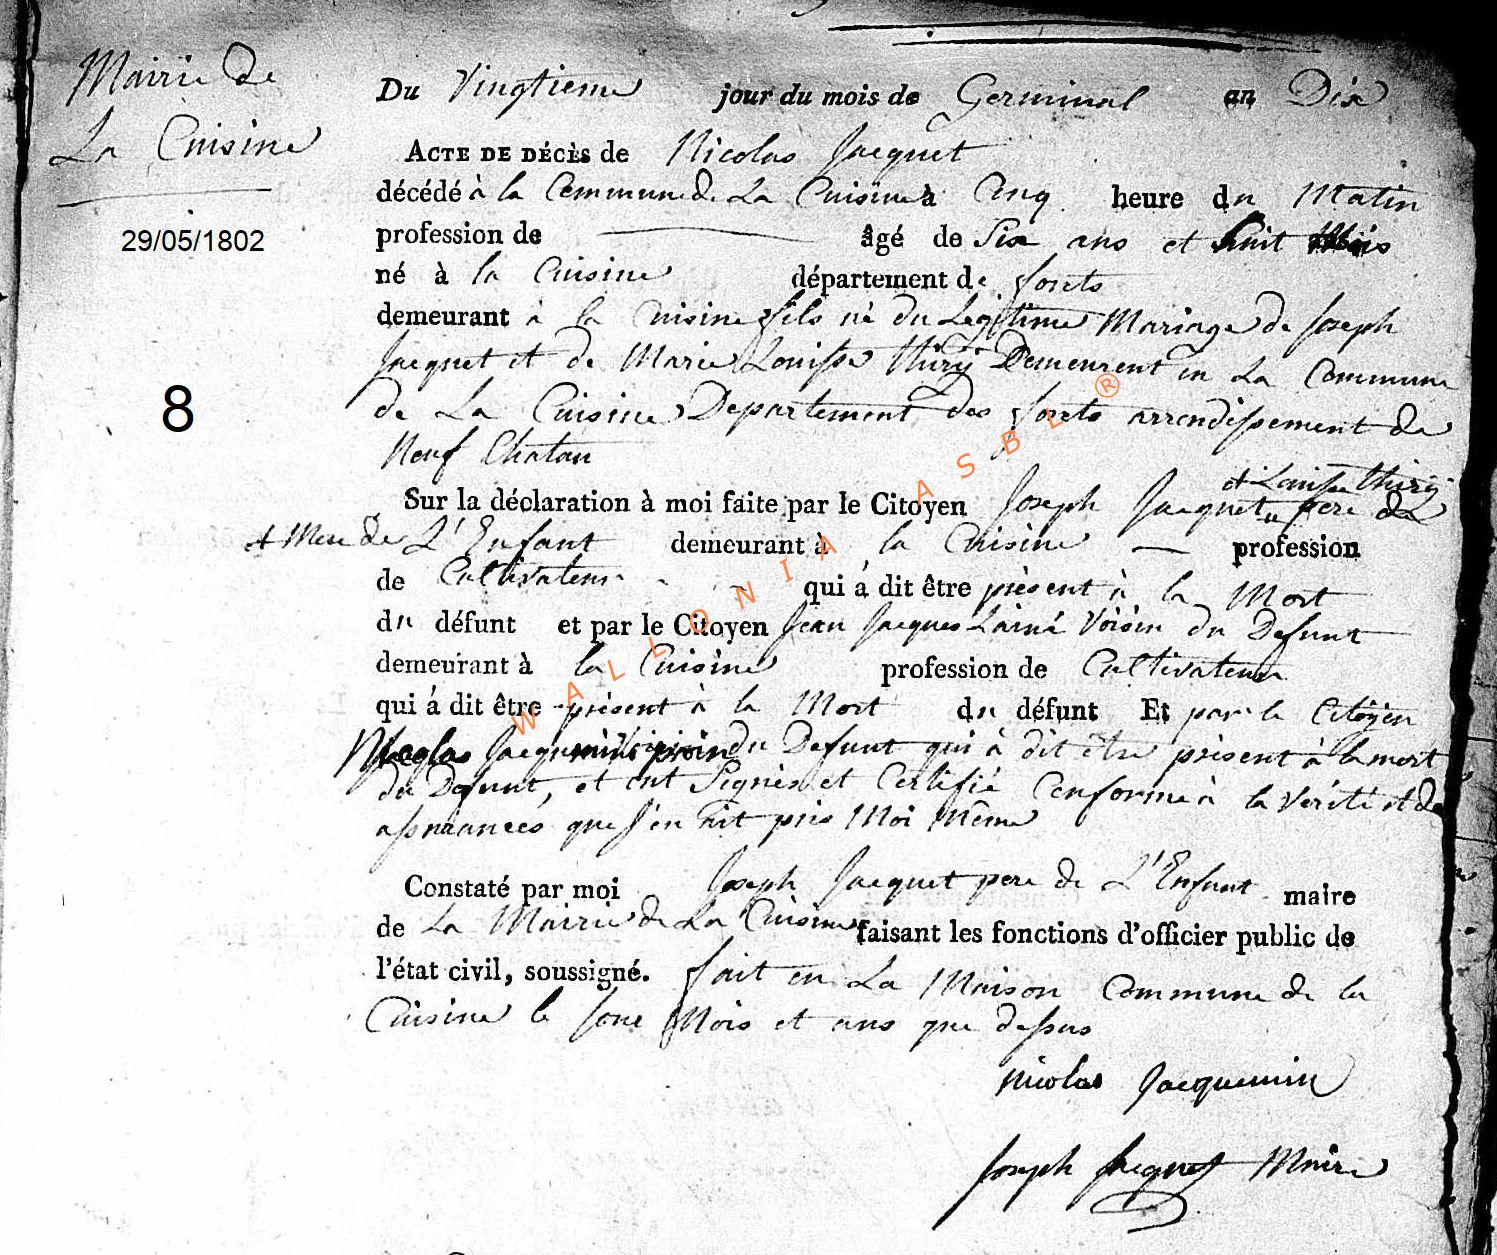 Mairie de
La Cuisine
29/05/1802
8
Du Vingtieme jour du mois de Germinal an Dix
ACTE DE DÉCÈS de Nicolas Jacquet
décédé à la Commune de La Cuisine à Cinq heure du Matin
profession de âgé de Six ans et huit Mois
né à la Cuisine département de forets
demeurant à la Cuisine fils né du Legitime Mariage de Joseph
Jacquet et de Marie Louisse thiry Demeurent en La Commune
de La Cuisine Departement des forets arrondissement de
Neuf Chatau
Sur la déclaration à moi faite par le Citoyen Joseph Jacquet pere de
et Louisse thiry
et Mere de L'Enfant demeurant à la Cuisine profession
de Cultivateur qui á dit être présent à la Mort
du défunt et par le Citoyen Jean Jacques Lainé Voisin du Defunt
demeurant à la Cuisine profession de Cultivateur
qui á dit être présent à la Mort du défunt Et par le Citoyen
Nicolas Jacquemin voisin du Defunt qui à dit être présent à la mort
du Defunt, et ont Signés et Certifié Conforme à la Vérité et de
assurances que J'en ait pris Moi Même
Constaté par moi Joseph Jacquet pere de L'Enfant maire
de La Mairie de La Cuisine faisant les fonctions d'officier public de
l'état civil, soussigné. fait en La Maison Commune de la
Cuisine le Jour Mois et ans que dessus
Nicolas Jacquemin
Joseph Jacquet Maire
WALLONIA ASBL ®